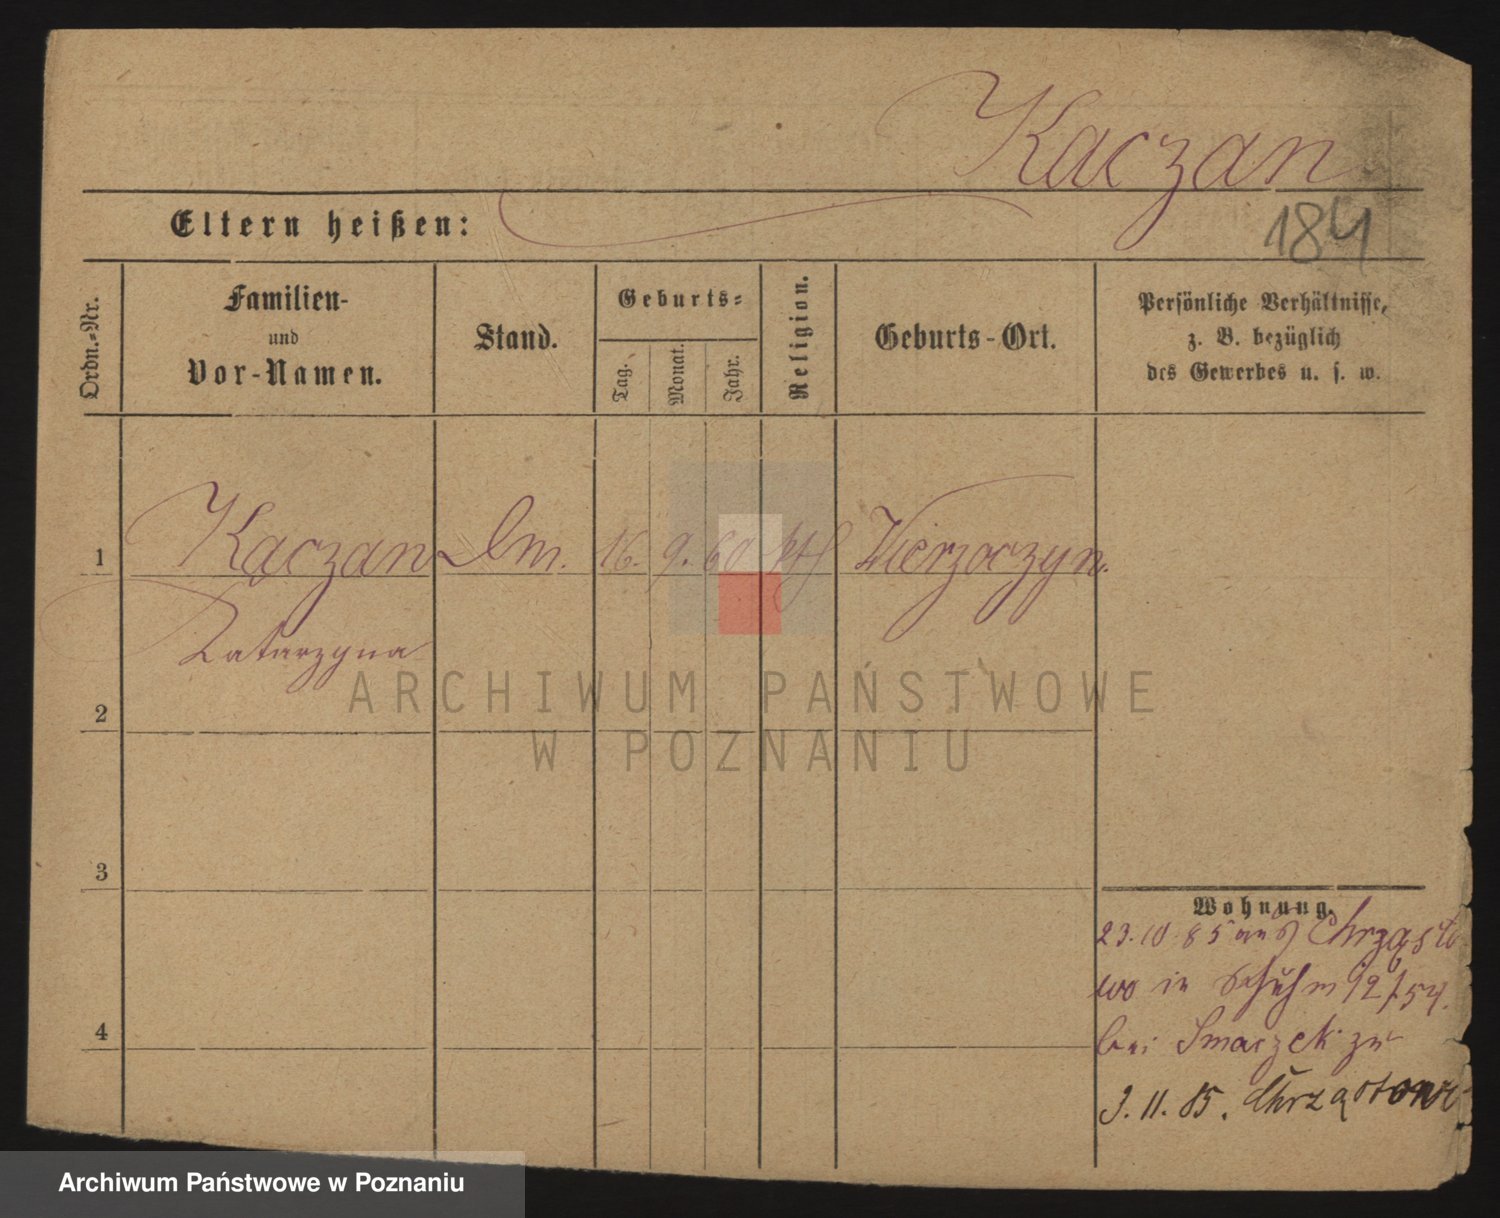 Kaczan
184
Eltern heißen:
Ordn.-Nr.
Familien-
und
Vor-Namen.
Stand.
Geburts-
Tag.
Monat.
Jahr.
Religion.
Geburts-Ort.
Persönliche Verhältnisse,
z. B. bezüglich
des Gewerbes u. s. w.
1 Kaczan Dm. 16. 9. 60 kth Wierzoczyn.
Katarzyna
2
3
4
Wohnung.
23. 10 85 aus Chrząsto
wo in 12/54.
bei Smaczek zu
3. 11. 85. Chrząstowo
ARCHIWUM PAŃSTWOWE
W POZNANIU
Archiwum Państwowe w Poznaniu